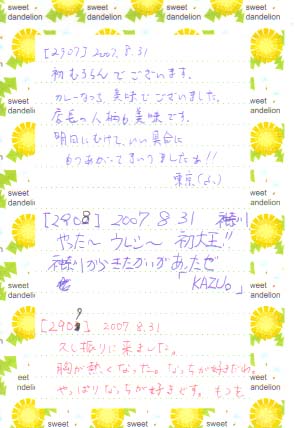 sweet dandelion
[2907] 2007.8.31
初むろらんでございます。
カレーなっとう、美味でございました。
店長の人柄も美味です。
明日にむけて、いい具合に
もりあがってまいりましたね!!
東京(よし)
[2908] 2007 8 31 神奈川
やった～ ウレシ～ 初大王!!
神奈川からきたかいがあったぜ
「KAZU。」
[2909] 2007.8.31
久し振りに来ました。
胸が熱くなった。なっちが好きだわ。
やっぱりなっちが好きです。もっと